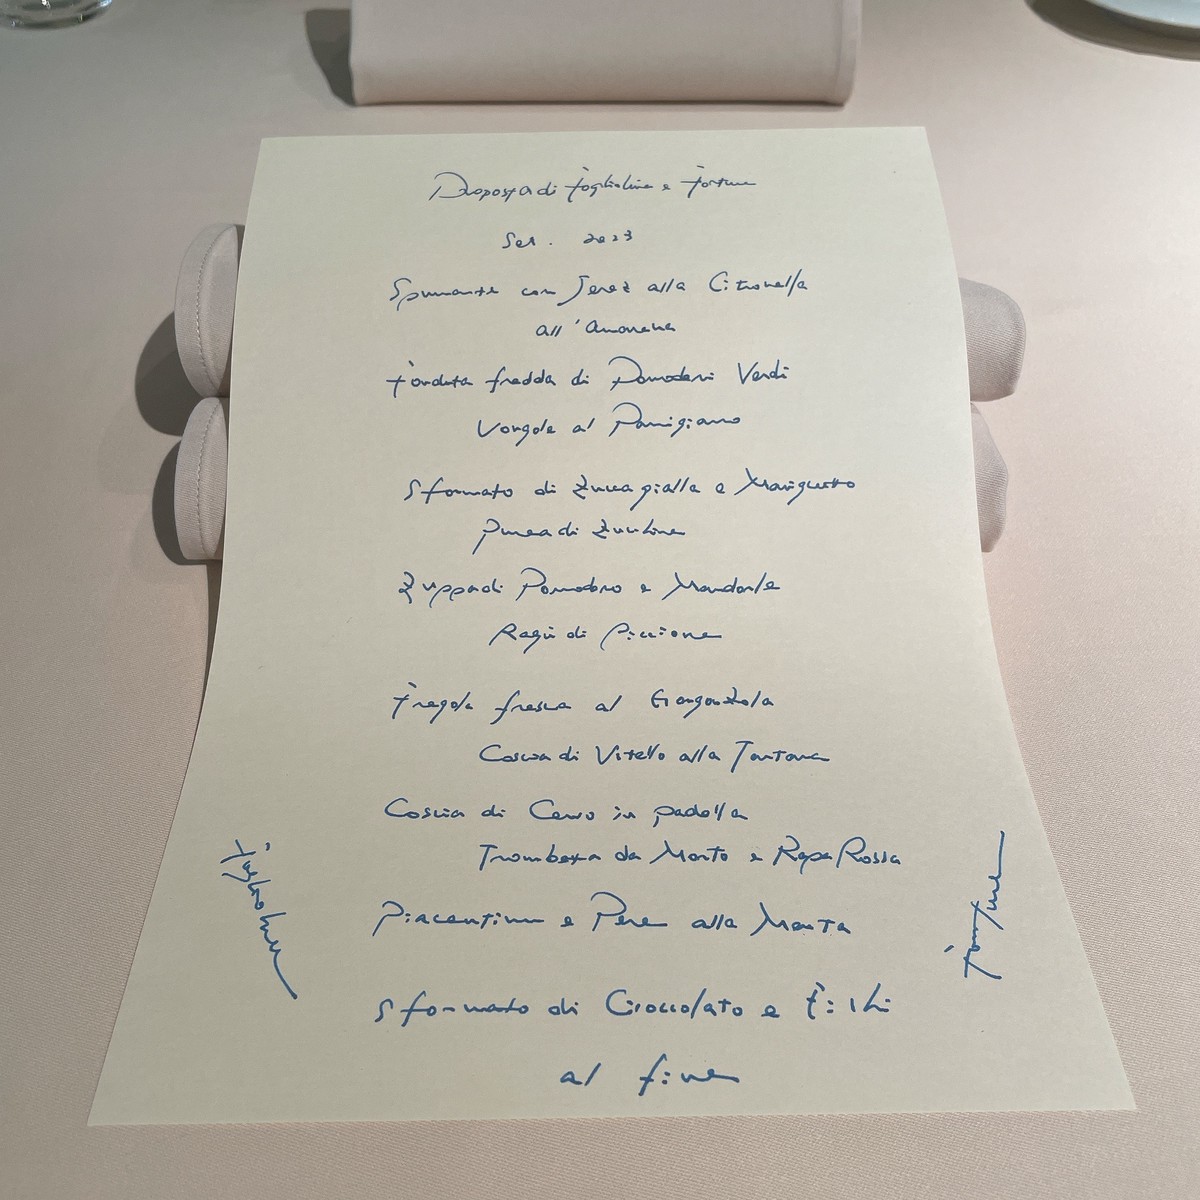 Proposta di Fogliolina e Fortune
Set. 2023
Spumante con Jerez alla Citronella
all'
Fonduta fredda di Pomodori Verdi
Vongole al Parmigiano
Sformato di Zucca gialla e
Purea di Zucchine
Zuppa di Pomodoro e Mandorle
Ragù di Piccione
Fregola fresca al Gorgonzola
Coscia di Vitello alla
Coscia di Cervo in padella
Trombetta da Morto e Rapa Rossa
Piacentinu e Pere alla Menta
Sformato di Cioccolato e Fichi
al fine